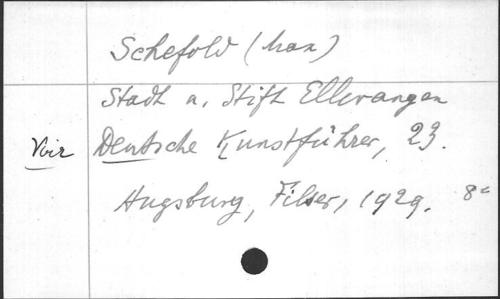 Schefold (Max)
Stadt u. Stift Ellwangen
Voir Deutsche Kunstführer, 23.
Augsburg, Filser, 1929. 8°